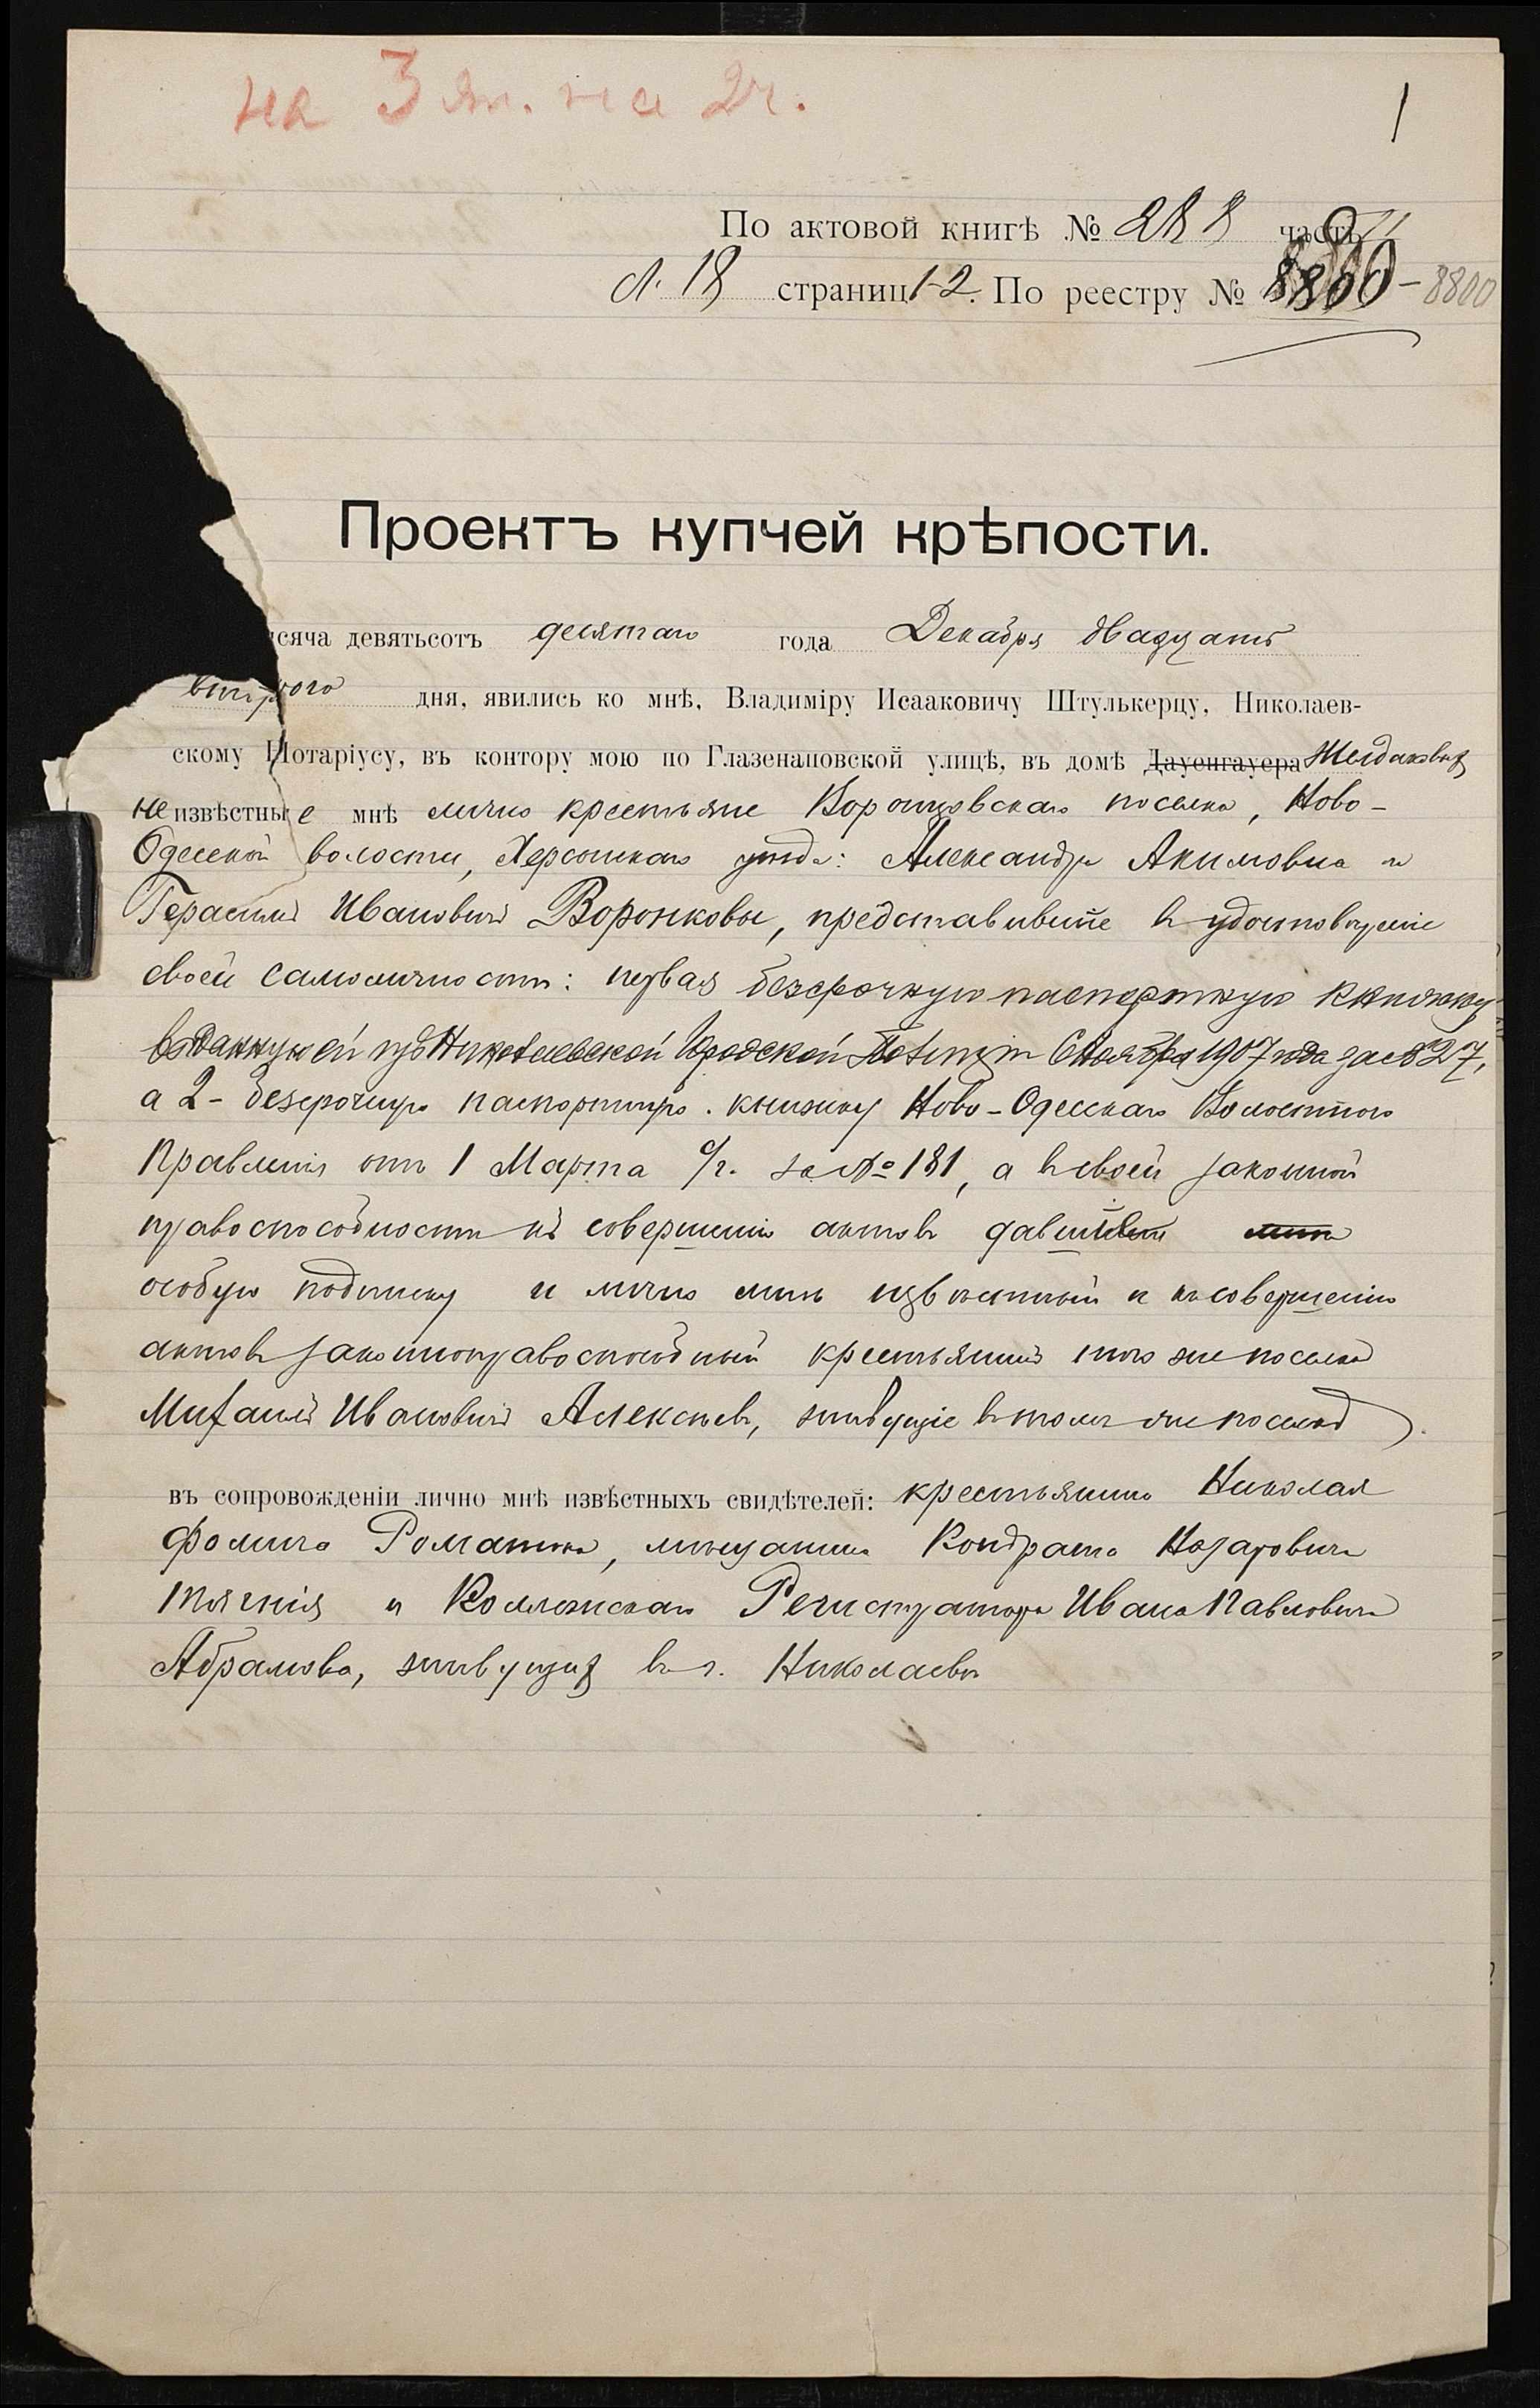 на 3 ян. на 2ч.
1
По актовой книгѣ № 288 часть II
л. 18 страниц 1-2. По реестру № 8800 - 8800
Проектъ купчей крѣпости.
сяча девятьсотъ десятаго года Декабря двадцать
второго дня, явились ко мнѣ, Владиміру Исааковичу Штулькерцу, Николаев-
скому Нотаріусу, въ контору мою по Глазенаповской улицѣ, въ домѣ Дауенгауера
неизвѣстные мнѣ лично крестьяне Воронцовскаго поселка, Ново-
Одесской волости, Херсонскаго уѣзда: Александра Акимовна и
Герасимъ Ивановичъ Воронковы, представившіе въ удостовѣреніе
своей самоличности: первая безсрочную паспортную книжку
выданную ей изъ Николаевской Городской Полиціи 6 Ноября 1907 года за № 827,
а 2- безсрочную паспортную книжку Ново-Одесскаго Волостного
Правленія отъ 1 Марта с/г. за № 181, а въ своей законной
правоспособности къ совершенію актовъ давшіе мнѣ
особую подписку и лично мнѣ извѣстный и къ совершенію
актовъ законноправоспособный крестьянинъ того же поселка
Михаилъ Ивановичъ Алексѣевъ, живущіе въ томъ же поселкѣ
въ сопровожденіи лично мнѣ извѣстныхъ свидѣтелей: крестьянина Николая
Фомича мѣщанина Кондрата Назаровича
и Коллежскаго Регистратора Ивана Павловича
Абрамова, живущихъ въ г. Николаевѣ